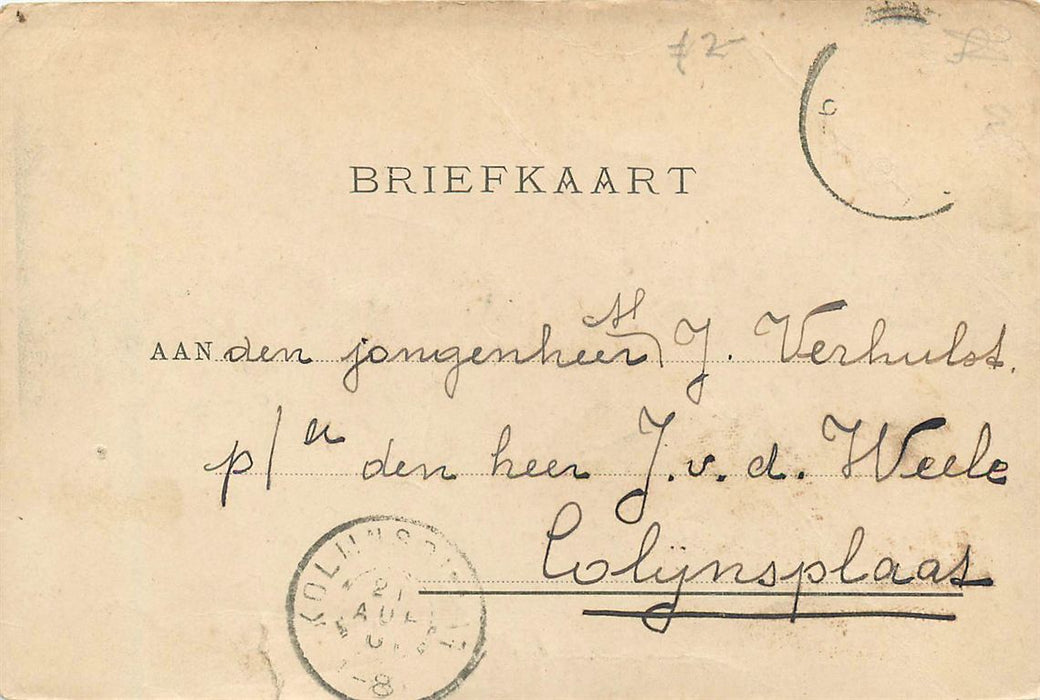 BRIEFKAART
AAN den jongenheer J. Verhulst.
p/a den heer J. v. d. Weele
Colijnsplaat
21
AUG